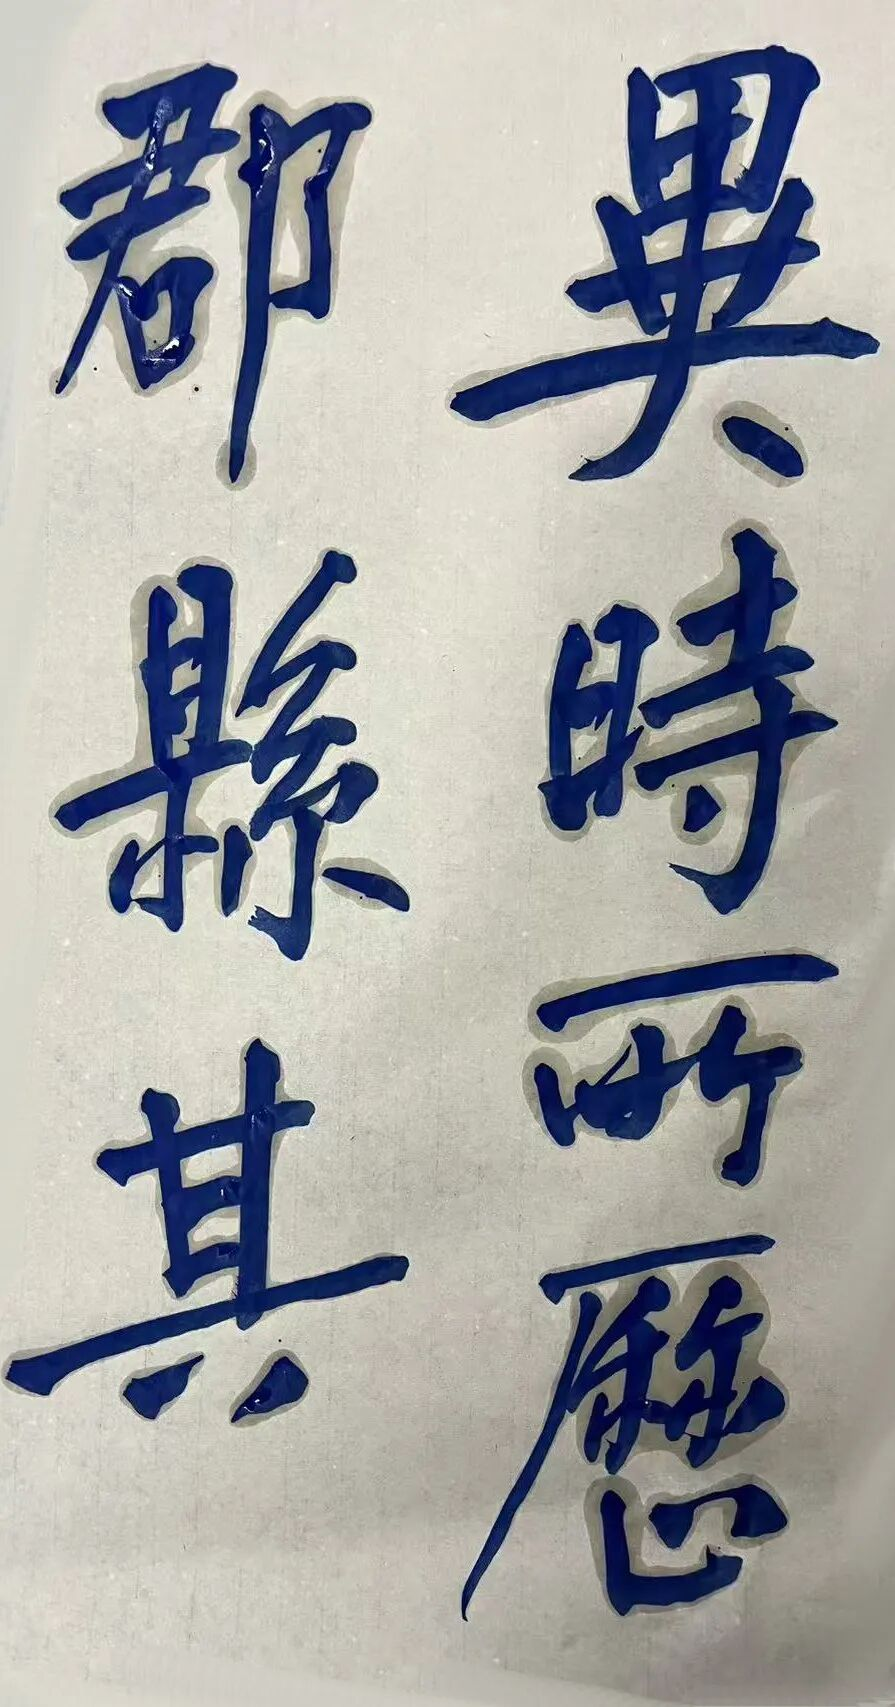 異時所歷
郡縣其